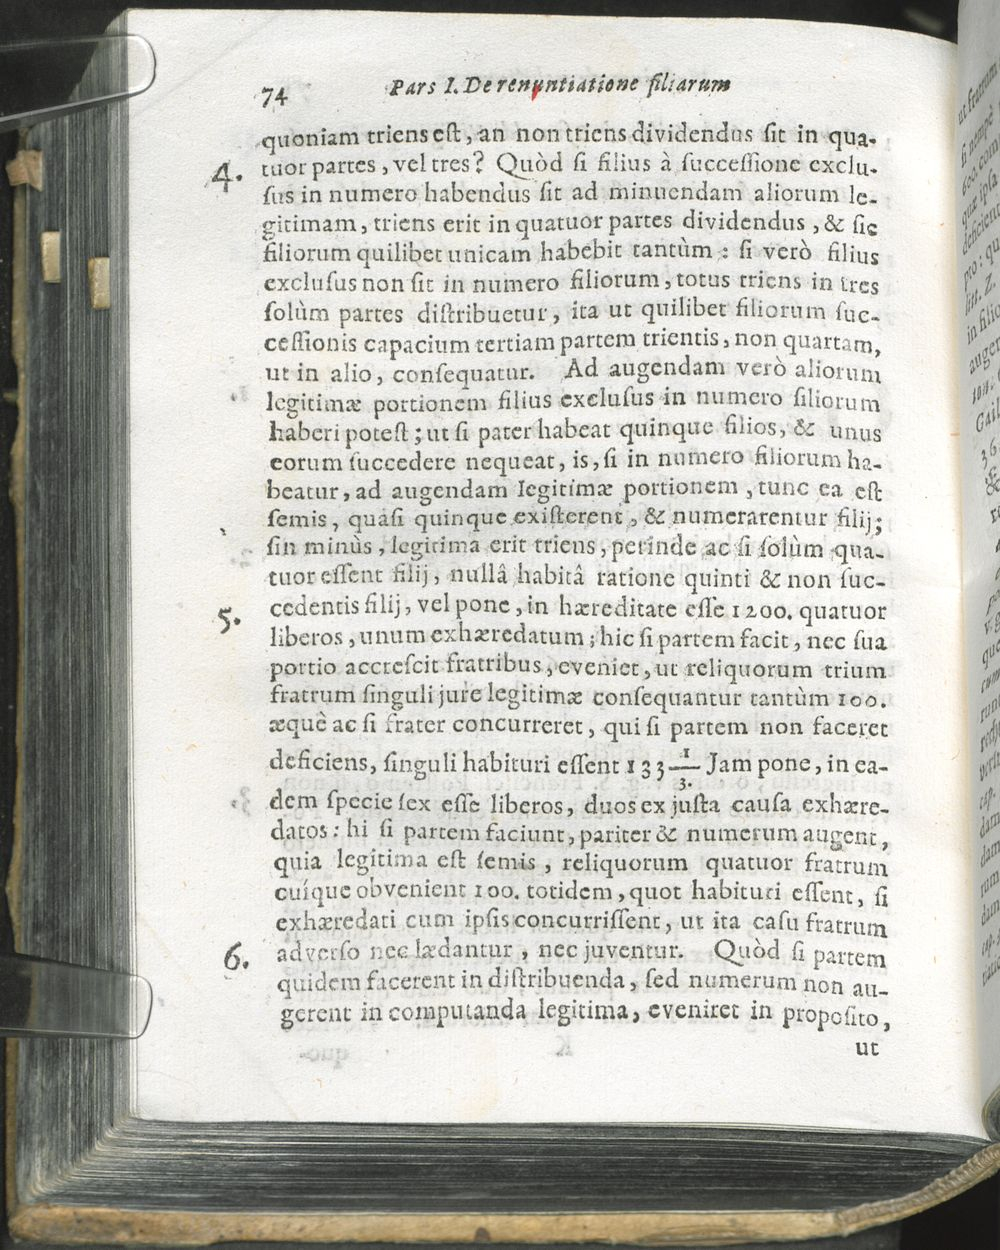 74 Pars I. De renuntiatione filiarum
quoniam triens est, an non triens dividendus sit in qua-
4. tuor partes, vel tres? Quòd si filius à successione exclu-
sus in numero habendus sit ad minuendam aliorum le-
gitimam, triens erit in quatuor partes dividendus, & sic
filiorum quilibet unicam habebit tantùm: si verò filius
exclusus non sit in numero filiorum, totus triens in tres
solùm partes distribuetur, ita ut quilibet filiorum suc-
cessionis capacium tertiam partem trientis, non quartam,
ut in alio, consequatur. Ad augendam verò aliorum
legitimæ portionem filius exclusus in numero filiorum
haberi potest; ut si pater habeat quinque filios, & unus
eorum succedere nequeat, is, si in numero filiorum ha-
beatur, ad augendam legitimæ portionem, tunc ea est
semis, quasi quinque existerent, & numerarentur filij;
sin minùs, legitima erit triens, perinde ac si solùm qua-
tuor essent filij, nullâ habitâ ratione quinti & non suc-
5. cedentis filij, vel pone, in hæreditate esse 1200. quatuor
liberos, unum exhæredatum; hic si partem facit, nec sua
portio accrescit fratribus, eveniet, ut reliquorum trium
fratrum singuli jure legitimæ consequantur tantùm 100.
æquê ac si frater concurreret, qui si partem non faceret
deficiens, singuli habituri essent 133 1/3. Jam pone, in ea-
dem specie sex esse liberos, duos ex justa causa exhære-
datos: hi si partem faciunt, pariter & numerum augent,
quia legitima est semis, reliquorum quatuor fratrum
cuíque obvenient 100. totidem, quot habituri essent, si
exhæredati cum ipsis concurrissent, ut ita casu fratrum
6. adverso nec lædantur, nec juventur. Quòd si partem
quidem facerent in distribuenda, sed numerum non au-
gerent in computanda legitima, eveniret in proposito,
ut